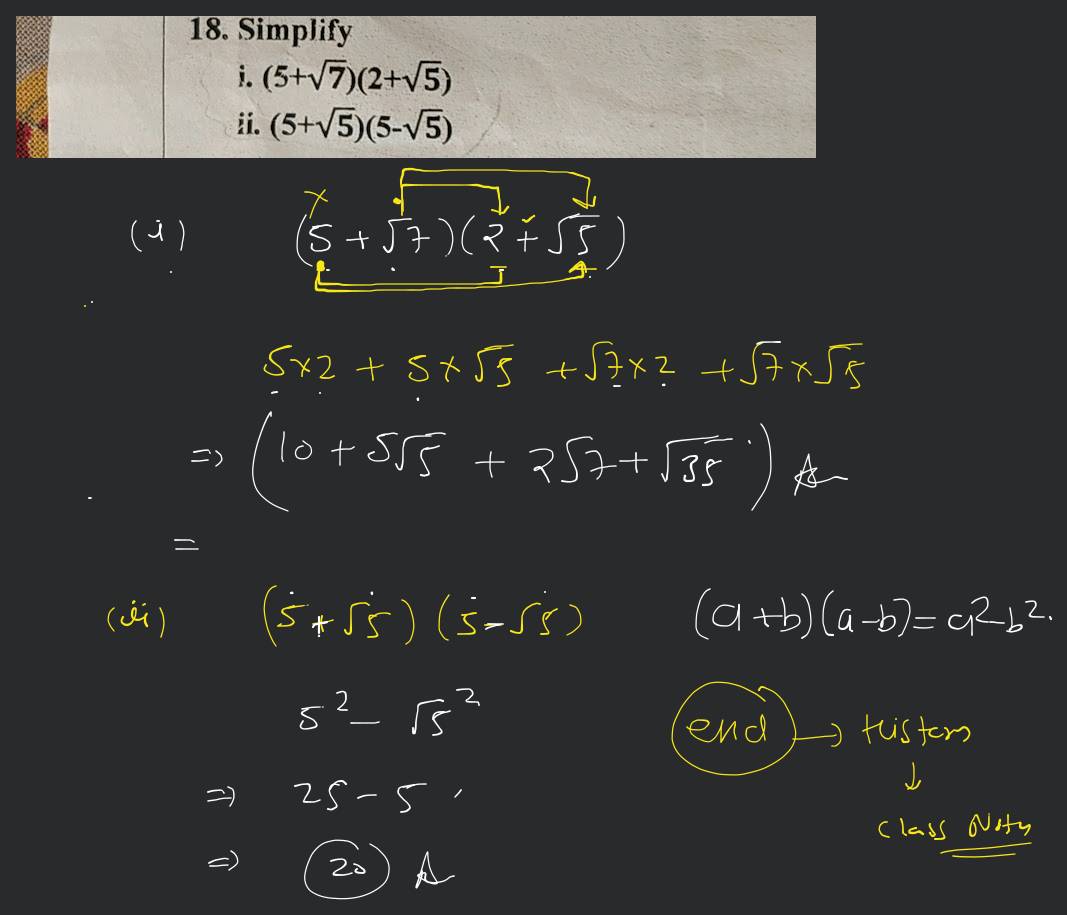 18. Simplify
i. (5+√7)(2+√5)
ii. (5+√5)(5-√5)
(i) (5 + √7)(2 + √5)
5×2 + 5×√5 + √7×2 + √7×√5
=> (10 + 5√5 + 2√7 + √35)
=
(ii) (5+√5)(5-√5) (a+b)(a-b)=a²-b².
5² - √5²
end →
=> 25 - 5
Class Notes
=> 20